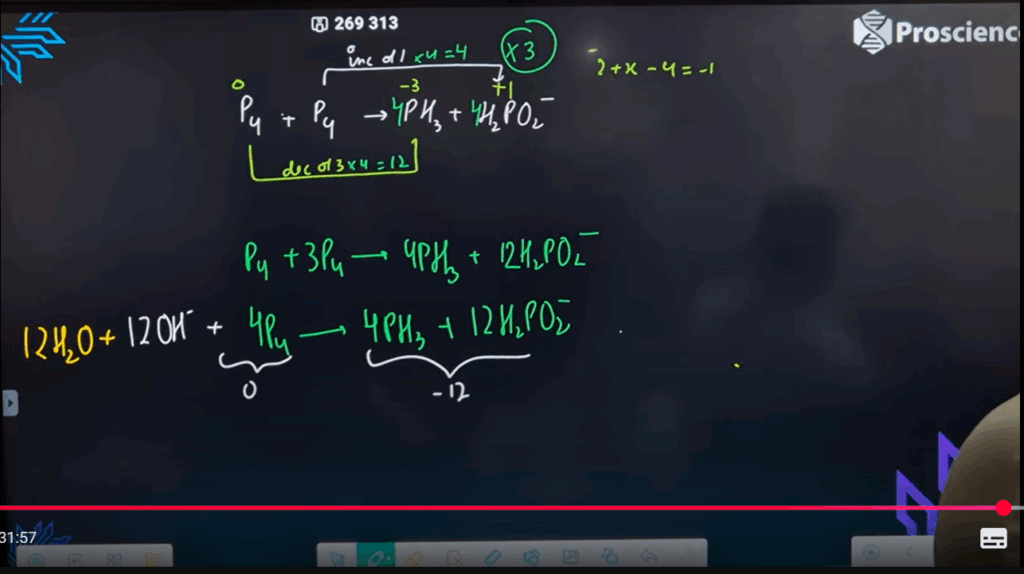 269 313
Proscienc
inc of 1 ×4=4 ×3
2+x-4=-1
0 -3 +1
P₄ + P₄ → 4PH₃ + 4H₂PO₂⁻
dec of 3×4=12
P₄ + 3P₄ → 4PH₃ + 12H₂PO₂⁻
12H₂O + 12OH⁻ + 4P₄ → 4PH₃ + 12H₂PO₂⁻
0 -12
31:57